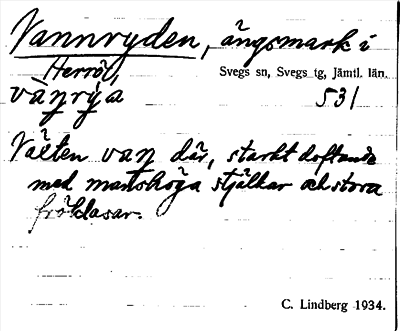 Vannryden, ängsmark i
Herrö,
Svegs sn, Svegs tg, Jämtl. län.
531
Växten van där, starkt doftande
med manshöga stjälkar och stora
fröklasar.
C. Lindberg 1934.